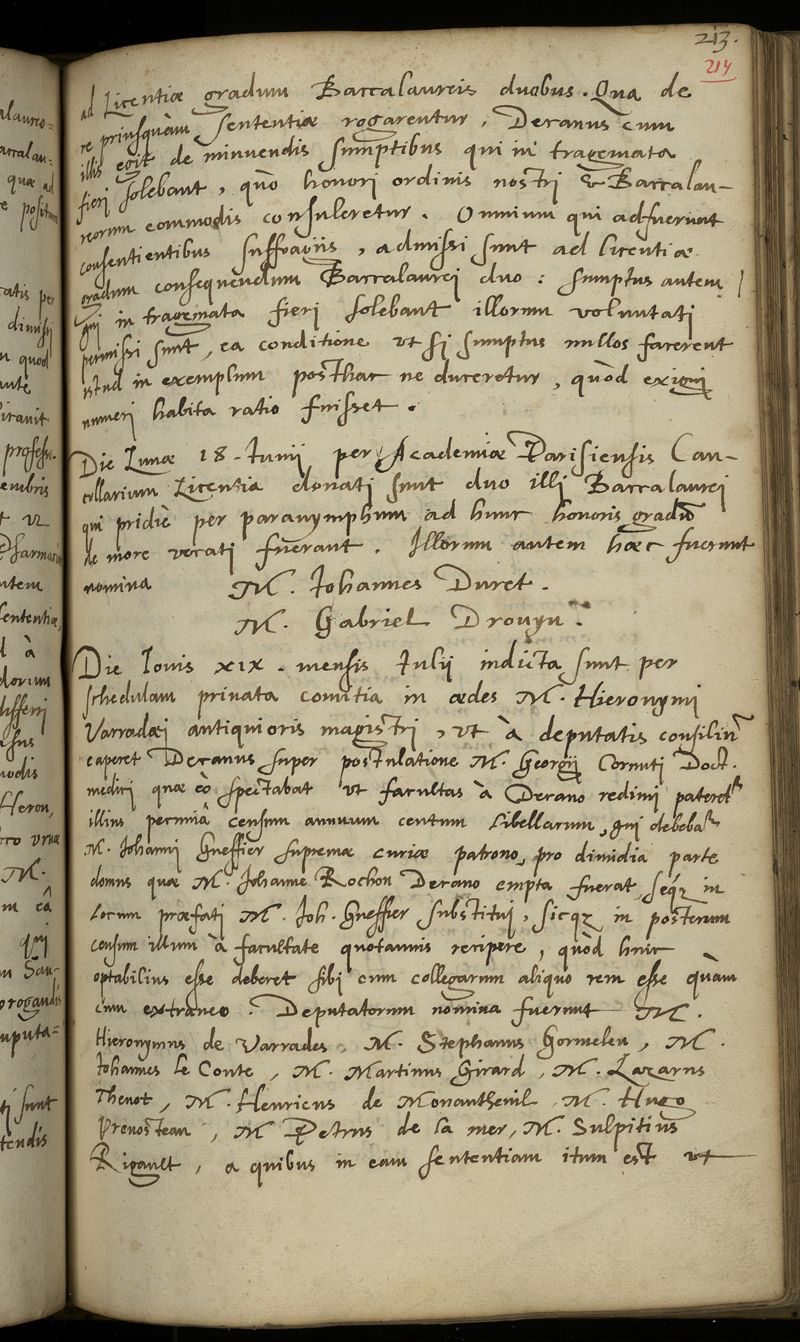 213.
214
ad Licentiæ gradum Baccalaureis duobus. Qua de
re priusquàm sententiæ rogarentur, Decanus cum
illis egit de minuendis sumptibus qui in tragemata
fieri solebant, quò honori ordinis nostri & Baccalau-
reorum commodis consuleretur. Omnium qui adfuerunt
consentientibus suffragiis, admissi sunt ad licentiæ
gradum consequendum Baccalaurei duo: sumptus autem
qui in tragemata fieri solebant illorum voluntati
permissi sunt, ea conditione vt si sumptus nullos facerent
istud in exemplum posthac ne duceretur, quòd exigui
numeri habita ratio fuisset.
Die Lunæ 18. Iunii per Academiæ Parisiensis Can-
cellarium Licentia donati sunt duo illi Baccalaurei
qui pridiè per paranymphum ad hunc honoris gradū
de more vocati fuerant. Illorum autem hæc fuerunt
nomina M. Johannes Duret.
M. Gabriel Drouyn.
Die Iouis xix. mensis Iulij indicta sunt per
schedulam priuata comitia in ædes M. Hieronymi
Varradæi antiquioris magistri, vt à deputatis consiliū
caperet Decanus super postulatione M. Georgij Cornuti Doct.
medici quæ eò spectabat vt facultas à Decano redimi pateret
illius pecuniâ censum annuum centum libellarum, qui debebatr
M. Johanni Gueffier supremæ curiæ patrono, pro dimidia parte
domus quæ M. Johanne Rochon Decano empta fuerat, seq; in
locum præfati M. Joh. Gueffier substitui, sicq; in posterum
censum illum à facultate quotannis recipere, quòd huic
optabilius esse deberet sibi cum collegarum aliquo rem esse quàm
cum extraneo. Deputatorum nomina fuerunt M.
Hieronymus de Varrades, M. Stephanus Gormelen, M.
Johannes le Conte, M. Martinus Girard, M. Lazarus
Thenot, M. Henricus de Monantheuil, M. Hugo
Preuosteau, M. Petrus de la mer, M. Sulpitius
Rigault, a quibus in eam sententiam itum est vt